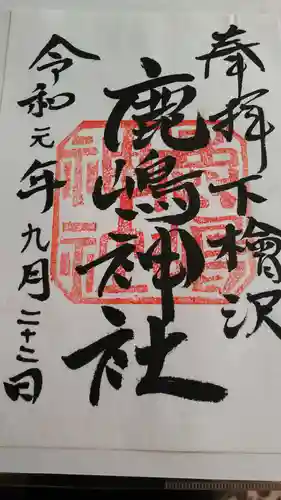 奉拝下檜沢
鹿嶋神社
令和元年九月二十二日